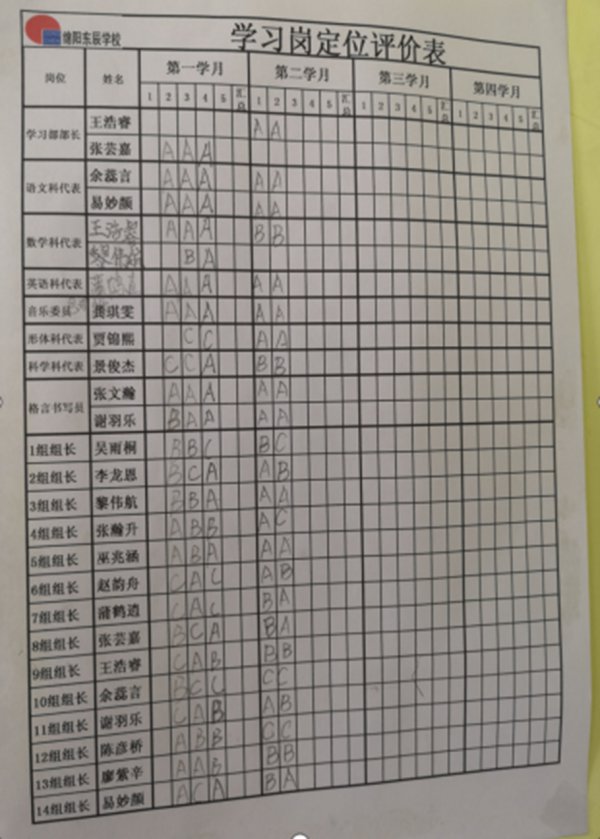 绵阳东辰学校
学习岗定位评价表
岗位 姓名 第一学月 第二学月 第三学月 第四学月
1 2 3 4 5 汇总 1 2 3 4 5 汇总 1 2 3 4 5 汇总 1 2 3 4 5 汇总
学习部部长 王浩睿 A A
张芸嘉 A A A
语文科代表 余蕊言 A A A A A
易妙颜 A A A A A
数学科代表 王浩睿 A A A B B
B A
英语科代表 A A A A A
音乐委员 龚琪雯 A A A A A
形体科代表 贾锦熙 C C A A
科学科代表 景俊杰 C C A B B
格言书写员 张文瀚 A A A A A
谢羽乐 B A A A A
1组组长 吴雨桐 B B C B C
2组组长 李龙恩 B C A A B
3组组长 黎伟航 B B A A A
4组组长 张瀚升 A B B A C
5组组长 巫兆涵 A B A A A
6组组长 赵韵舟 C A C A B
7组组长 蒲鹤逍 C A C B A
8组组长 张芸嘉 B C A B A
9组组长 王浩睿 C A B B B
10组组长 余蕊言 B C C C C
11组组长 谢羽乐 C A B A B
12组组长 陈彦桥 A B B C C
13组组长 廖紫辛 A A B B B
14组组长 易妙颜 A C A B A